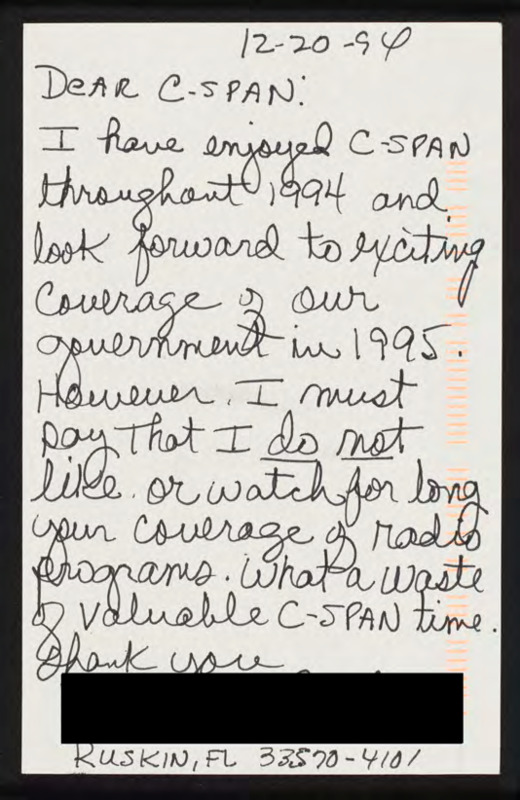 12-20-94
DEAR C-SPAN:
I have enjoyed C-SPAN
throughout 1994 and
look forward to exciting
coverage of our
government in 1995.
However, I must
say that I do not
like, or watch for long
your coverage of radio
programs. What a waste
of valuable C-SPAN time.
Thank you
RUSKIN, FL 33570-4101